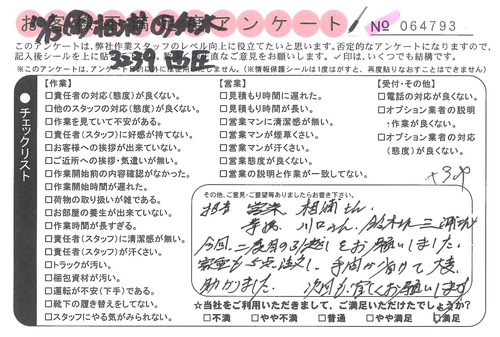 アンケート No 064793
このアンケートは、弊社作業スタッフのレベル向上に役立てたいと思います。否定的なアンケートになりますので、
※このアンケートは、アンケート目的以外には使用致しません。(※情報保護シールは1度はがすと、再度貼りなおすことはできません)
チェックリスト
【作業】
□責任者の対応(態度)が良くない。
□他のスタッフの対応(態度)が良くない。
□作業を見ていて不安がある。
□責任者(スタッフ)に好感が持てない。
□お客様への挨拶が出来ていない。
□ご近所への挨拶・気遣いが無い。
□作業開始前の内容確認がなかった。
□作業開始時間が遅れた。
□荷物の取り扱いが雑である。
□お部屋の養生が出来ていない。
□作業時間が長すぎる。
□責任者(スタッフ)に清潔感が無い。
□責任者(スタッフ)が汗くさい。
□トラックが汚い。
□梱包資材が汚い。
□運転が不安(下手)である。
□靴下の履き替えをしてない。
□スタッフにやる気がみられない。
【営業】
□見積もり時間に遅れた。
□見積もり時間が長い。
□営業マンに清潔感が無い。
□営業マンが煙草くさい。
□営業マンが汗くさい。
□営業態度が良くない。
□営業の説明と作業が一致してない。
【受付・その他】
□電話の対応が良くない。
□オプション業者の説明
・作業が良くない。
□オプション業者の対応
(態度)が良くない。
その他、ご意見・ご要望等ありましたらお書き下さい。
担当 営業 相浦さん
今回、二度目の引越しをお願いしました。
助かりました。 次回も宜しくお願いします
☆当社をご利用いただきまして、ご満足いただけたでしょうか?
□不満 □やや不満 □普通 □やや満足 ☑満足